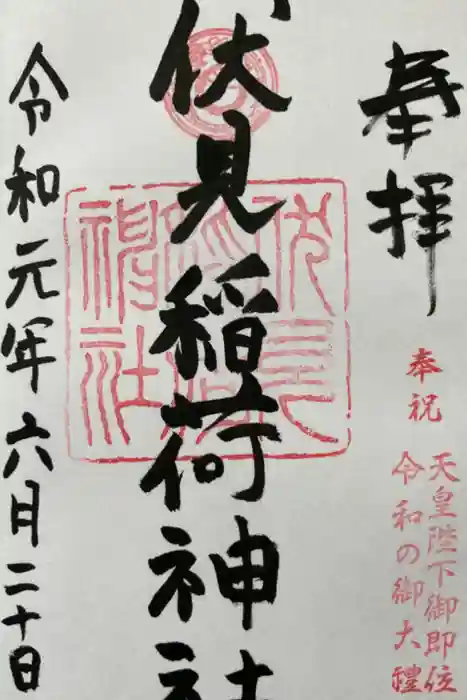 奉拝
奉祝
天皇陛下御即位
令和の御大禮
伏見稲荷神社
令和元年六月二十日